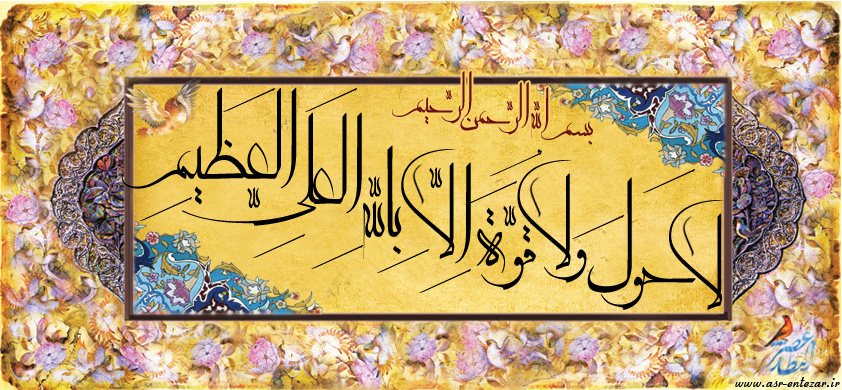 بسم الله الرّحمن الرّحيم
لا حَول وَلا قُوّةَ اِلاّ بِاللّهِ العَلىِّ العَظيمِ
عصر انتظار
www.asr-entezar.ir